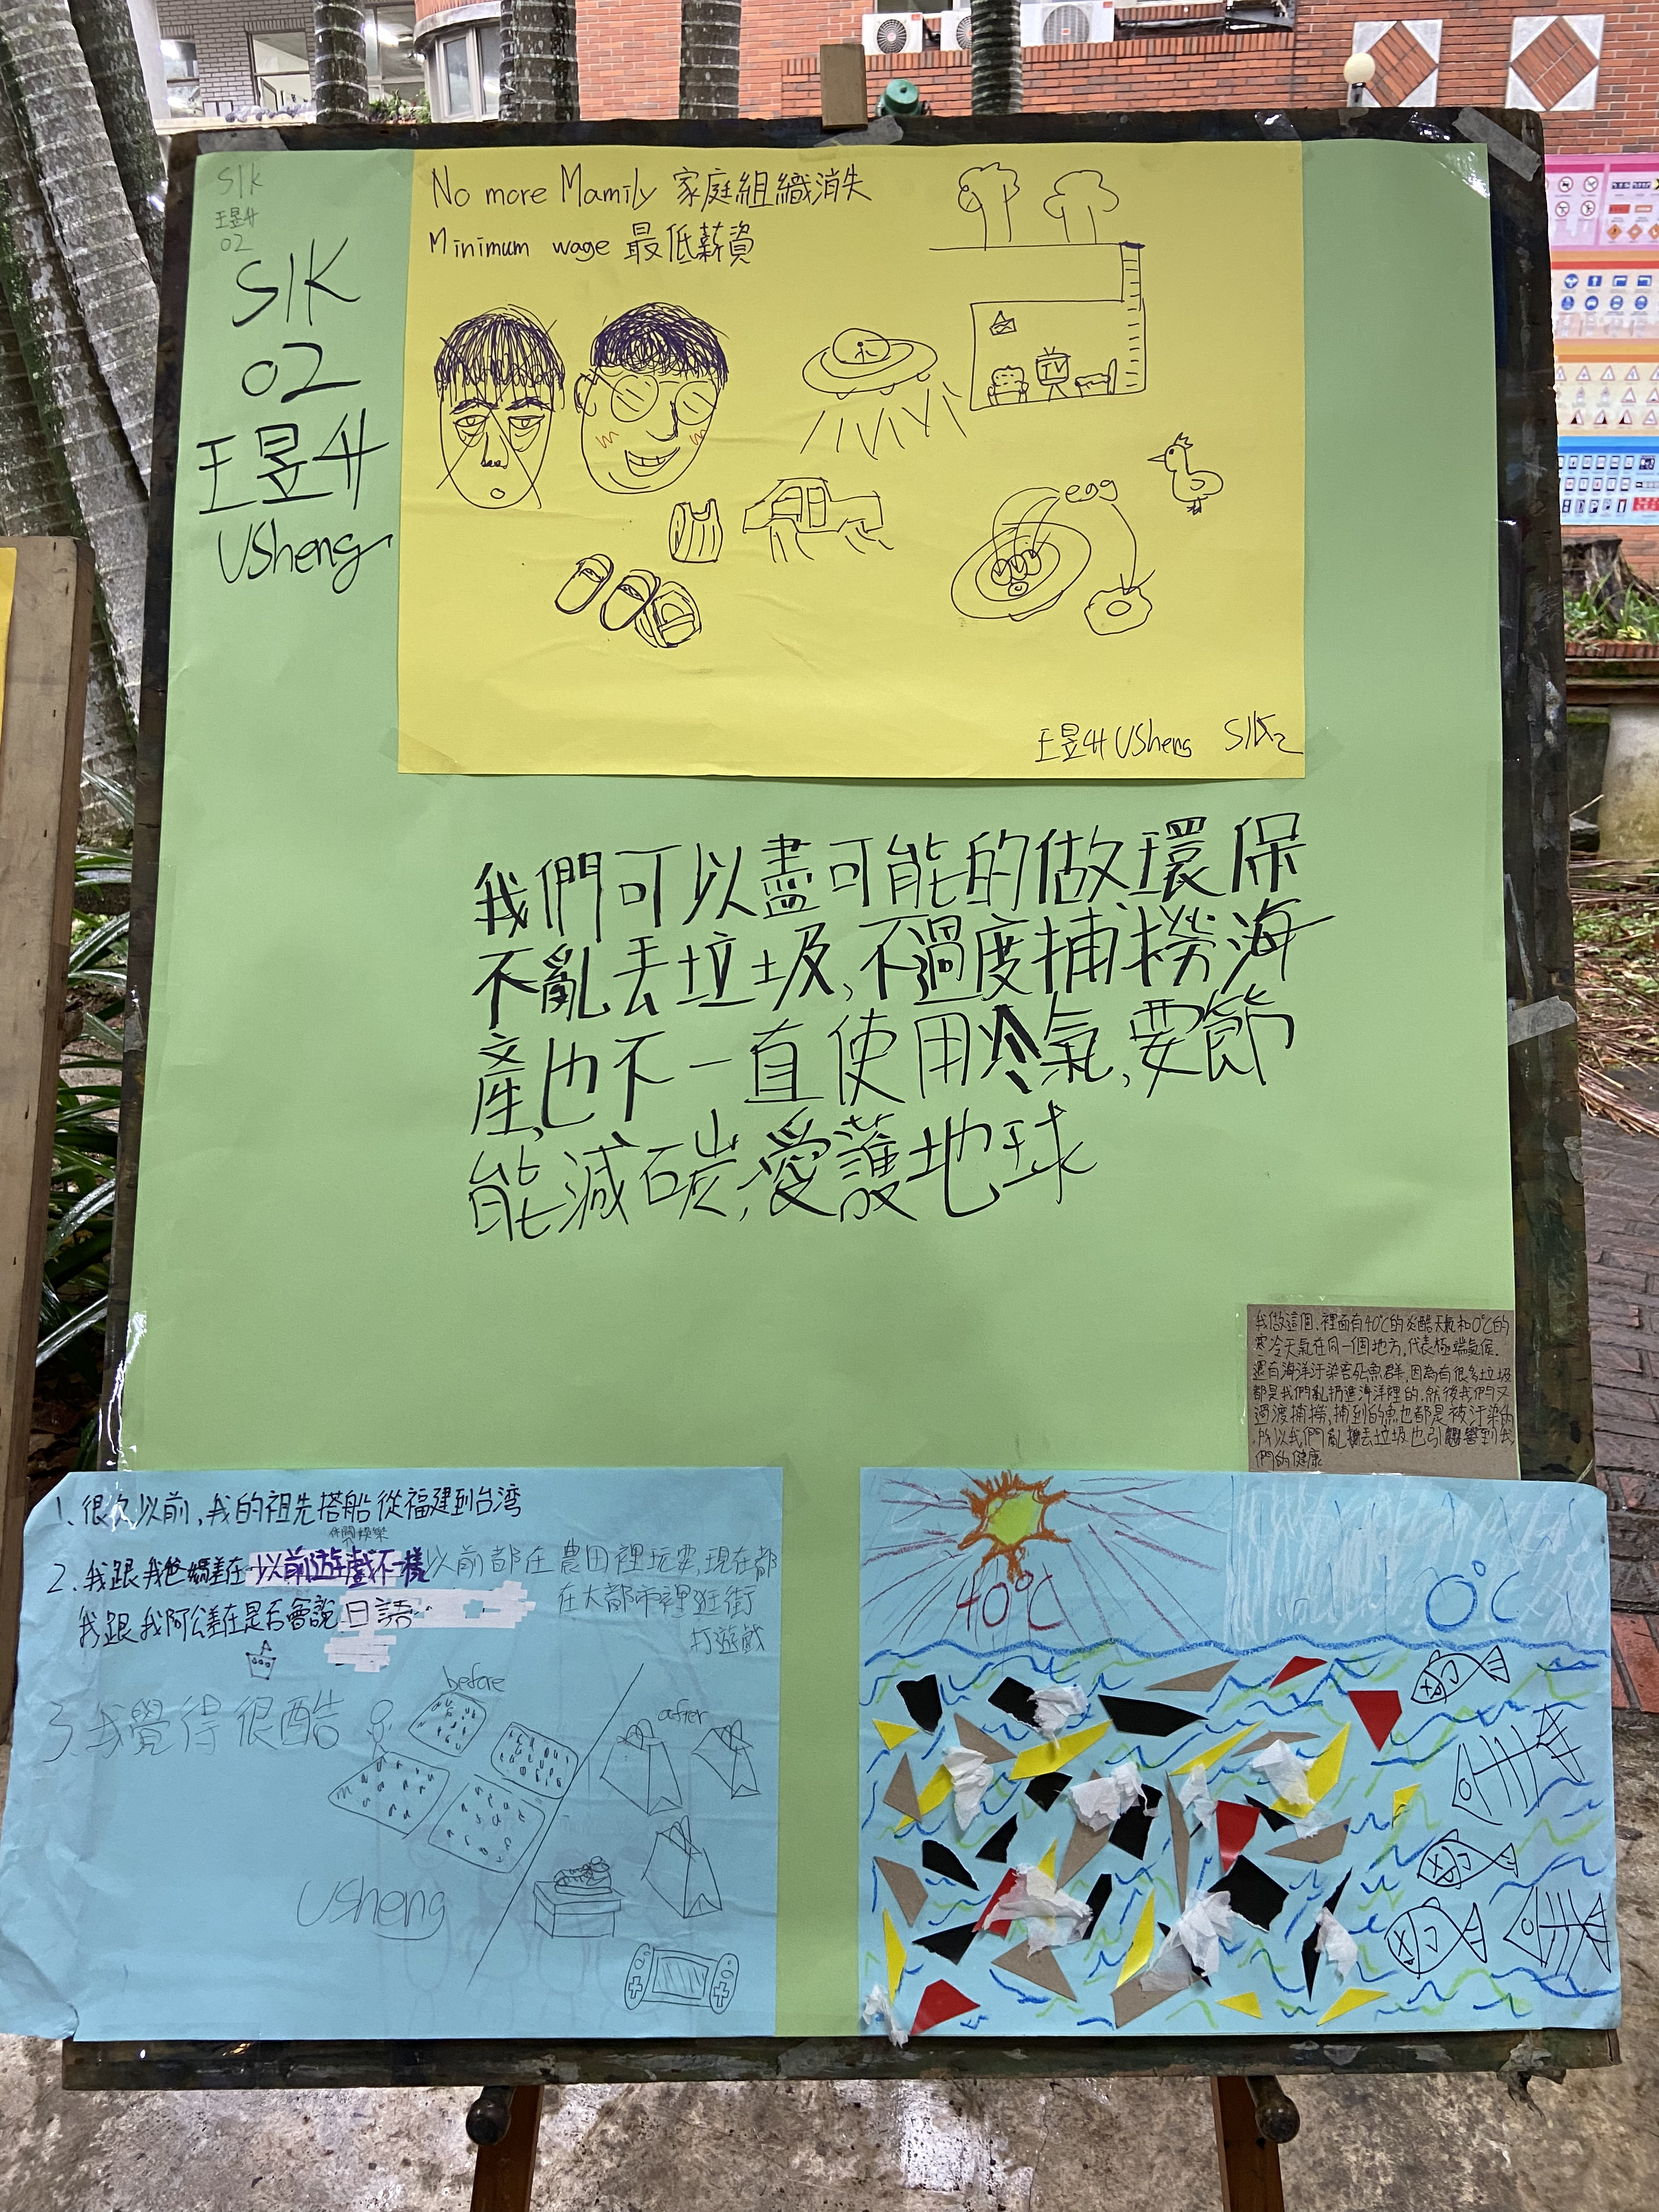 S1K
王昱升
02
S1K
02
王昱升
USheng
No more Mamily 家庭組織消失
Minimum wage 最低薪資
TV
egg
王昱升 USheng S1K2
我們可以盡可能的做環保
不亂丟垃圾,不過度捕撈海
產,也不一直使用冷氣,要節
能減碳,愛護地球
我做這個,裡面有40℃的炎酷天氣和0℃的
寒冷天氣在同一個地方,代表極端氣候.
還有海洋汙染害死魚群,因為有很多垃圾
都是我們亂扔進海洋裡的,然後我們又
過渡捕撈,捕到的魚也都是被汙染的
,所以我們亂丟垃圾也引響到我
們的健康
1、很久以前,我的祖先搭船從福建到台湾
休閒娛樂
2、我跟我爸媽差在以前遊戲不一樣以前都在農田裡玩耍,現在都
在大都市裡逛街
打遊戲
我跟我阿公差在是否會說日語
3、我覺得很酷
before
after
USheng
40℃
0℃